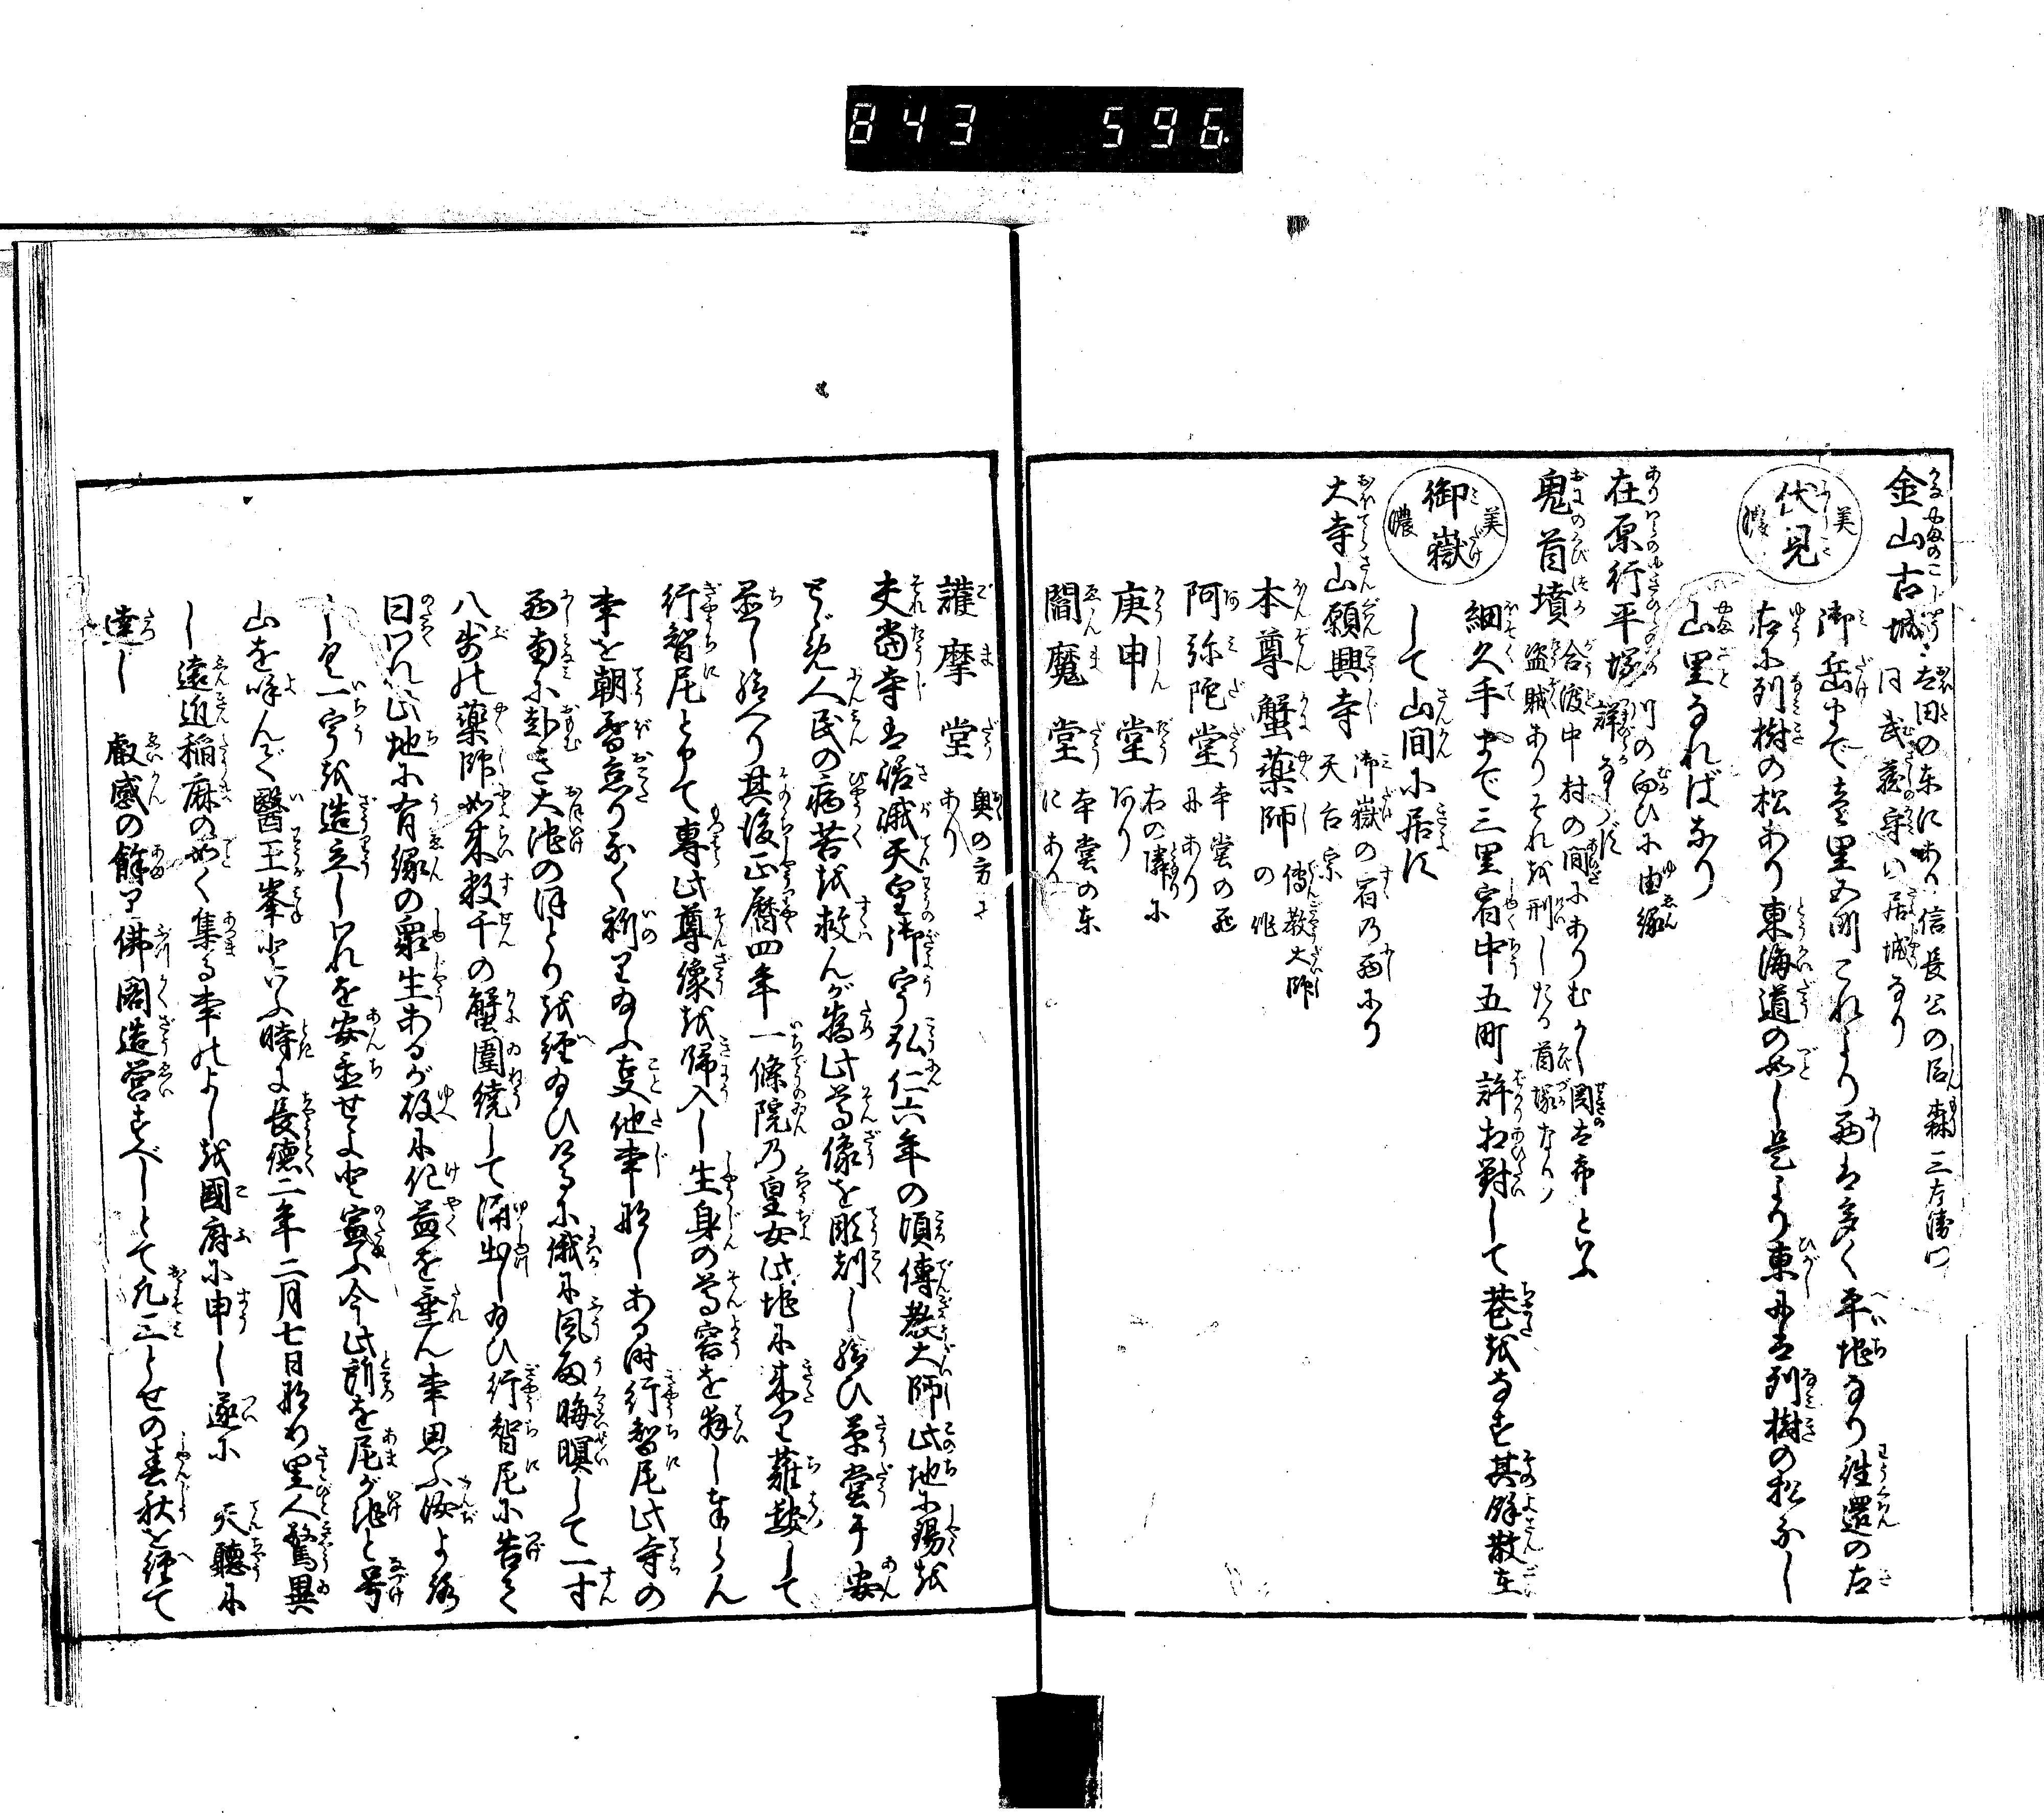 843 596
金山古城 太田の東にあり信長公の臣森三左衛門
同武蔵守の居城なり
美濃 伏見
御岳まで壱里五町これより西は多く平地なり往還の左
右に列樹の松あり東海道の如し是より東には列樹の松なし
山里なればなり
在原行平塚 川の向ひに由縁
詳ならず
鬼首墳 合渡中村の間にありむかし関の太郎といふ
盗賊ありそれを刑したる首塚なり
細久手まで三里宿中五町許相対して巷をなす其餘散在
美濃 御嶽
して山間に居す
大寺山願興寺 御嶽の宿の西にあり
天台宗
本尊蟹薬師 傳教大師
の作
阿弥陀堂 本堂の𠀋
にあり
庚申堂 右の隣に
あり
閻魔堂 本堂の東
にあり
護摩堂 奥の方に
あり
夫当寺は嵯峨天皇御宇弘仁六年の頃傳教大師此地に錫を
とゞめ人民の病苦を救んが為此尊像を彫刻し給ひ草堂に安
置し給へり其後正暦四年一條院の皇女此地に来り薙髪して
行智尼と申て専此尊像を帰入し生身の尊容を拝し奉らん
事を朝暮怠りなく祈り給ふ更他事なしある時行智尼此寺の
西南に赴き大池のほとりを経給ひけるに俄に風雨晦瞑して一寸
八歩の薬師如来数千の蟹圍繞して涌出し給ひ行智尼に告て
曰われ此地に有縁の衆生あるが故に化益を垂ん事思ふ汝よろ
しく一宇を造立しわれを安置せよと宣ふ今此所を尼が池と号
山を呼んで醫王峯といふ時に長徳二年二月七日なり里人驚異
し遠近稲麻の如く集る事のよしを國府に申し遂に 天聴に
達し 叡感の餘り佛閣造営すべしとて凡三とせの春秋を経て